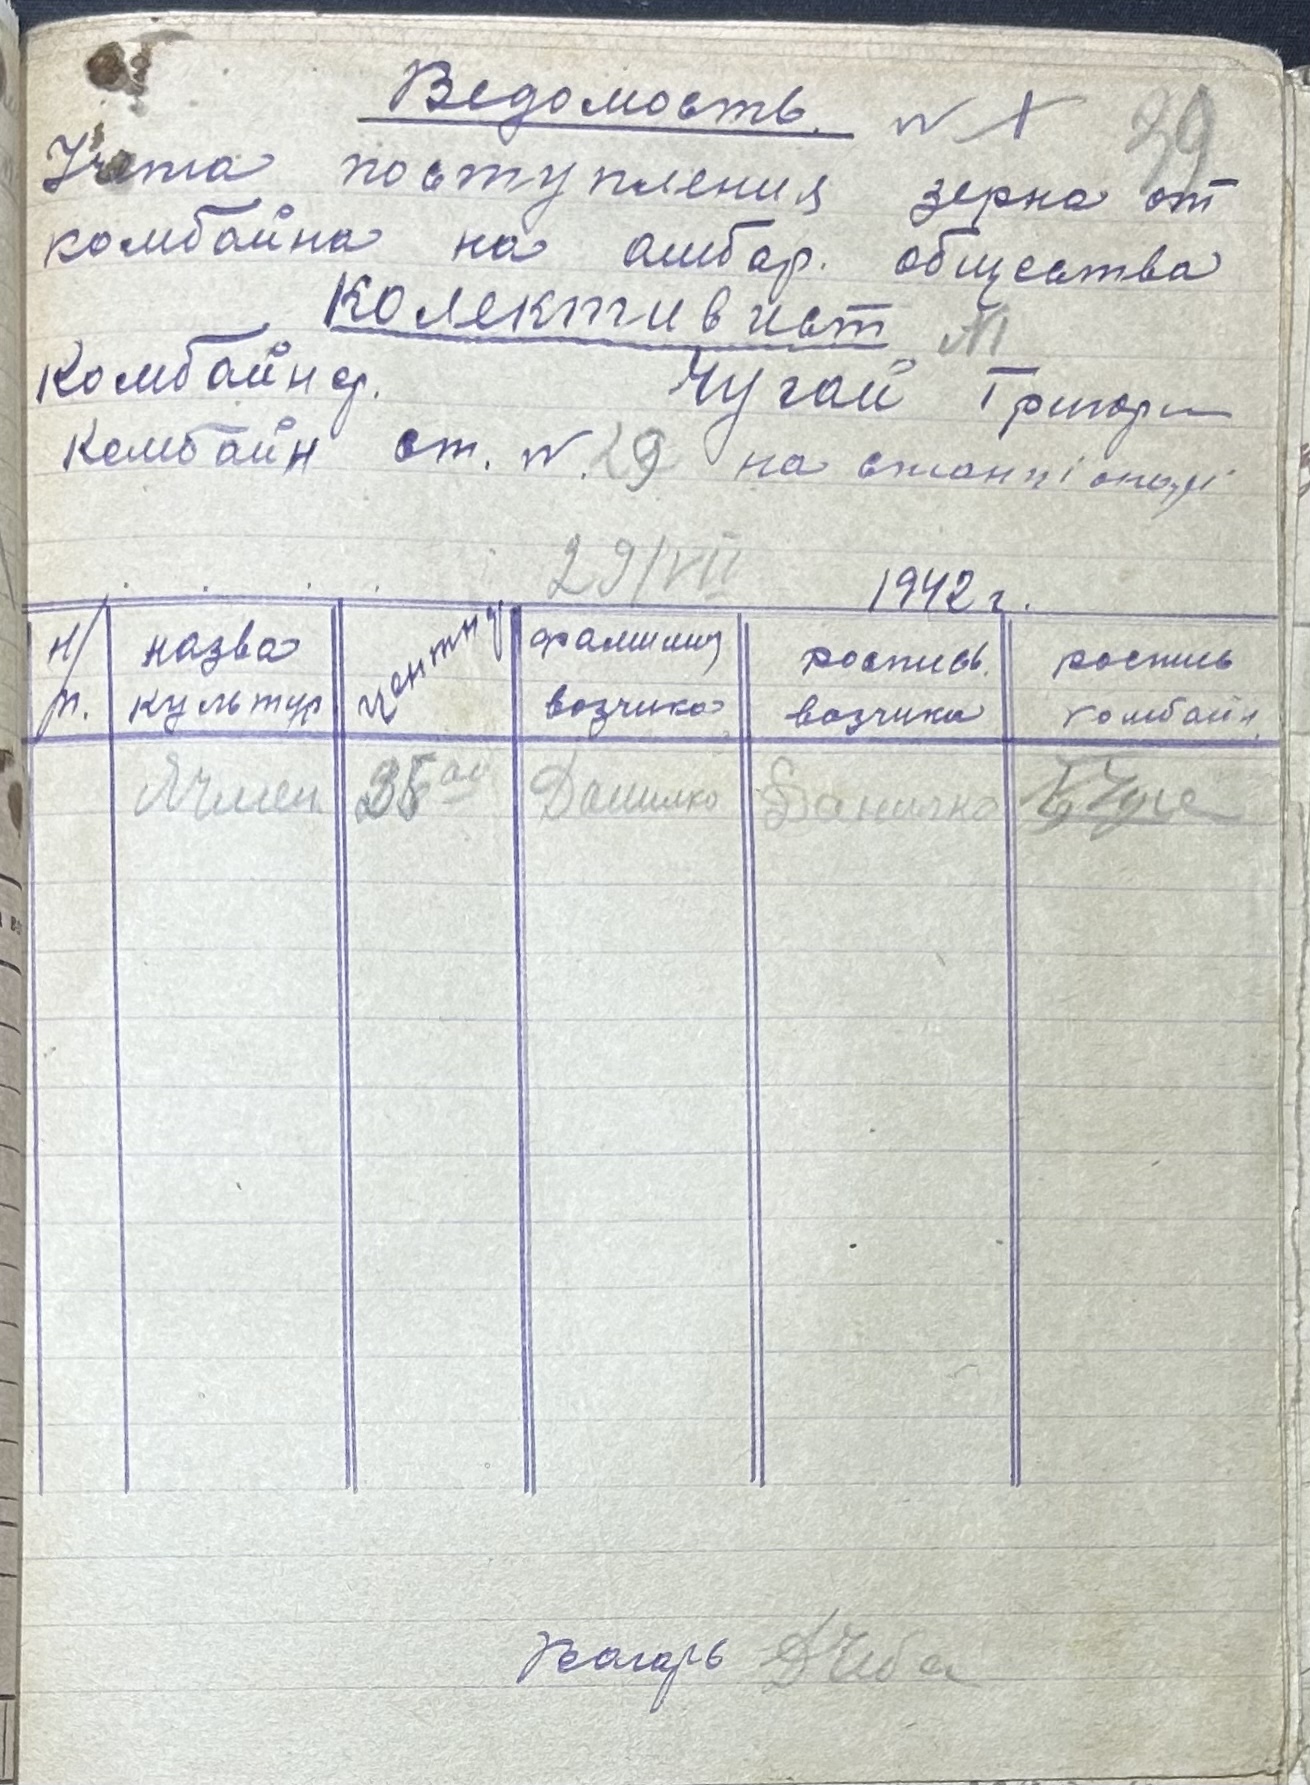 Ведомость. № 1
39
Учета поступления зерна от
комбайна на амбар. общества
Колективист №1
Комбайнер. Чугай Григори
Комбайн ст. №. 29 на
29/VII 1942 г.
н/п. назва культур центну фамилия возчика роспись возчика роспись комбайн.
Ячмен. 35 00 Данилко Данилко